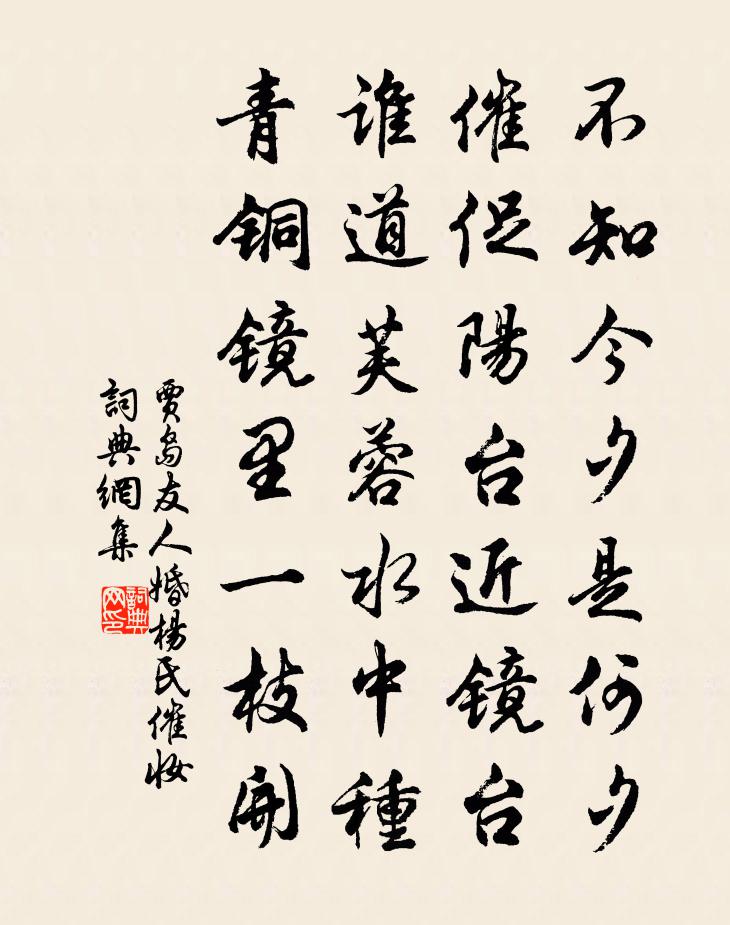 不知今夕是何夕
催促陽台近镜台
谁道芙蓉水中種
青铜镜里一枝開
贾岛友人婚楊氏催妝
詞典網集
詞典网印